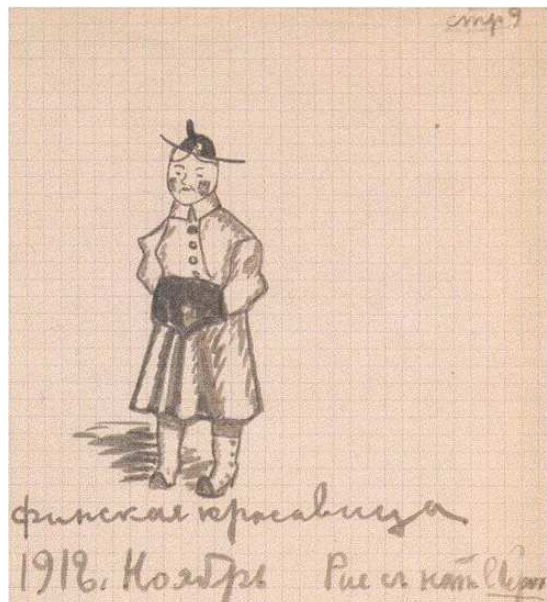 стр 9
финская красавица
1918. Ноябрь Рис съ нат